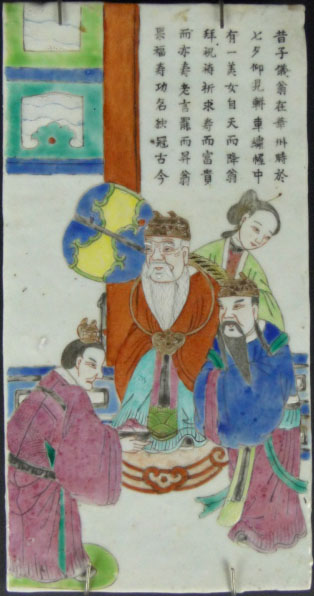 昔子儀翁在華州時於
七夕仰見軿車繡幄中
有一美女自天而降翁
拜祝禱祈求壽而富貴
而亦壽老言罷而昇翁
果福壽功名独冠古今